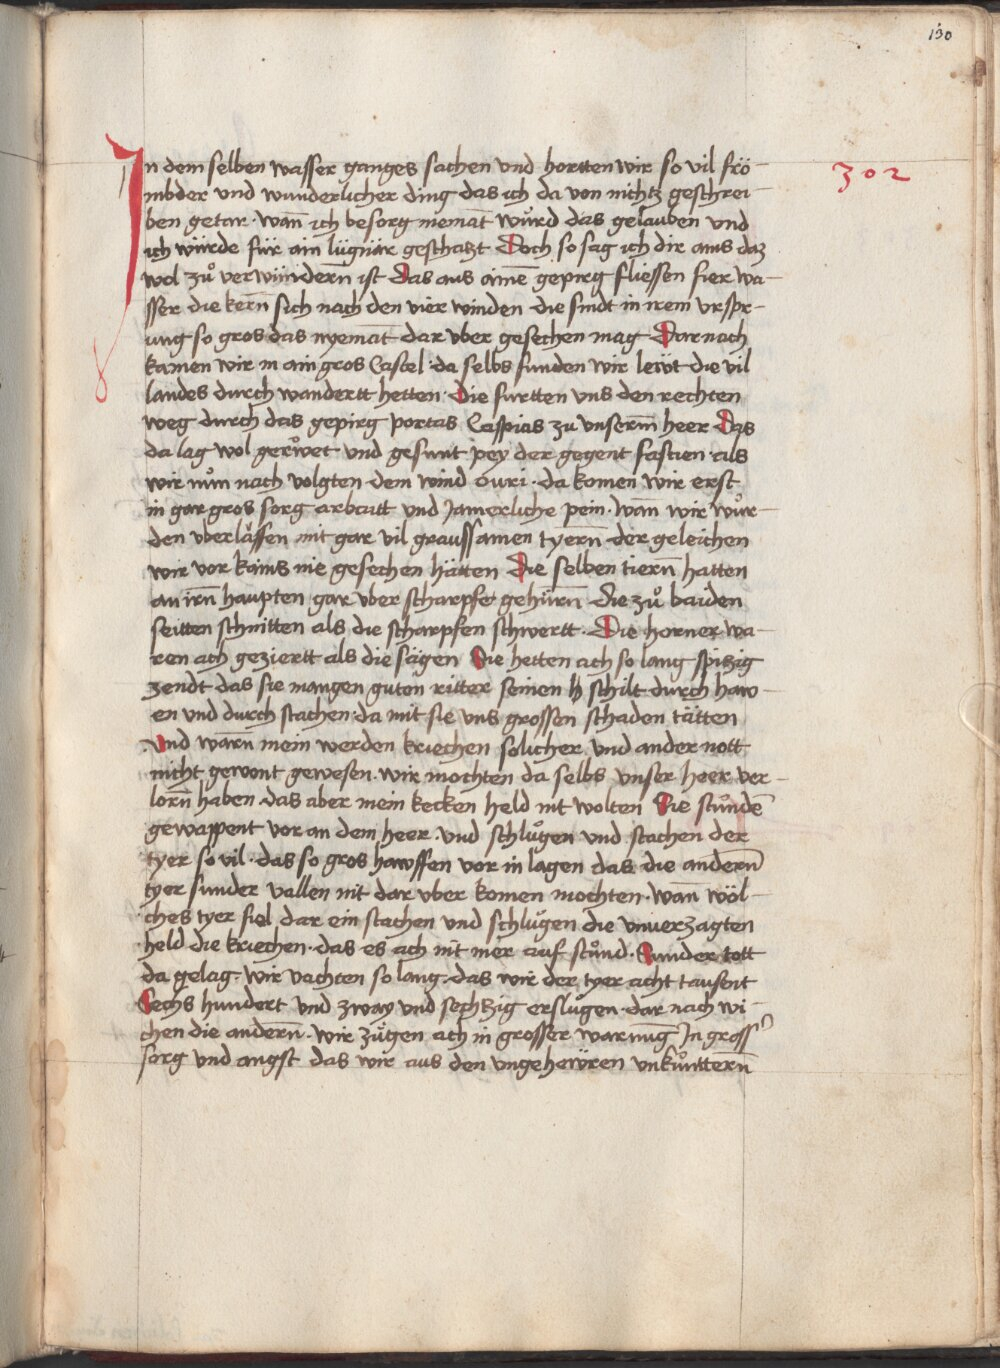 130
302
In dem selben wasser ganges sachen vnd hortten wir so vil frö-
mbder vnd wunderlicher ding das ich da von nichtz geschrei-
ben getar · wan̄ ich besorg niemāt wuͤrd das gelauben vnd
ich würde für ain lügnär geschatzt Doch so sag ich dir ains daz
wol zuͦ verwünndern̄ ist Das aus ainē gepirg fliessen fier wa-
sser die kern̄ sich nach den vier winden die sindt in irem vrspr-
ung so gros das nyemāt dar vber gesechen mag Dar nach
kamen wir in ain gros Castel · da selbs funden wir lewt die vil
landes durch wandertt hetten · Die furtten vns den rechten
weg durch das gepirg portas Caspias zu vnserm̄ heer Das
da lag wol gerwet vnd gesunt pey der gegent fastien · als
wir nuͦn nach volgten dem wind ouri · da komen wir erst
in gar gros sorg arbaitt vnd Jamerliche pein · wan̄ wir wuͤr-
den vberlässen mit gar vil graussamen tyern̄ der geleichen
wir vor kains nie gesechen hätten Die selben tiern̄ hatten
an irn̄ haupten gar vber scharpfe gehürn̄ die zuͦ baiden
seitten schnitten als die scharpfen schwertt · Die horner wa-
ren ach geziertt als die sägen Sie hetten ach so lang spitzig
zendt das sie mangen guten ritter seinen schilt durch haw-
en vnd durch stachen · da mit sie vns grossen schaden tätten
Vnd warn̄ mein werden kriechen solicher vnd ander nott
nicht gewont gewesen · wir mochten da selbs vnser heer ver-
lorn̄ haben das aber mein kecken held nit wolten Sie stuͦndē
gewappent vor an dem heer · vnd schluͤgen vnd stachen der
tyer so vil · das so gros hawffen vor in lagen das die andern̄
tyer sunder vallen nit dar vber komen mochten · wan̄ wöl-
ches tyer fiel dar ein stachen vnd schluͤgen die vnuerzagten
held die kriechen · das es ach nit mer auf stuͦnd · Sunder tott
da gelag · wir vachten so lang · das wir der tyer acht tausent
Sechs hundert vnd zway vnd sechtzig ersluͤgen · dar nach wi-
chen die andern̄ · wir zuͤgen ach in grosser warnug Jn gross
sorg vnd angst das wir aus den vngehewren vnkuͦnttern̄